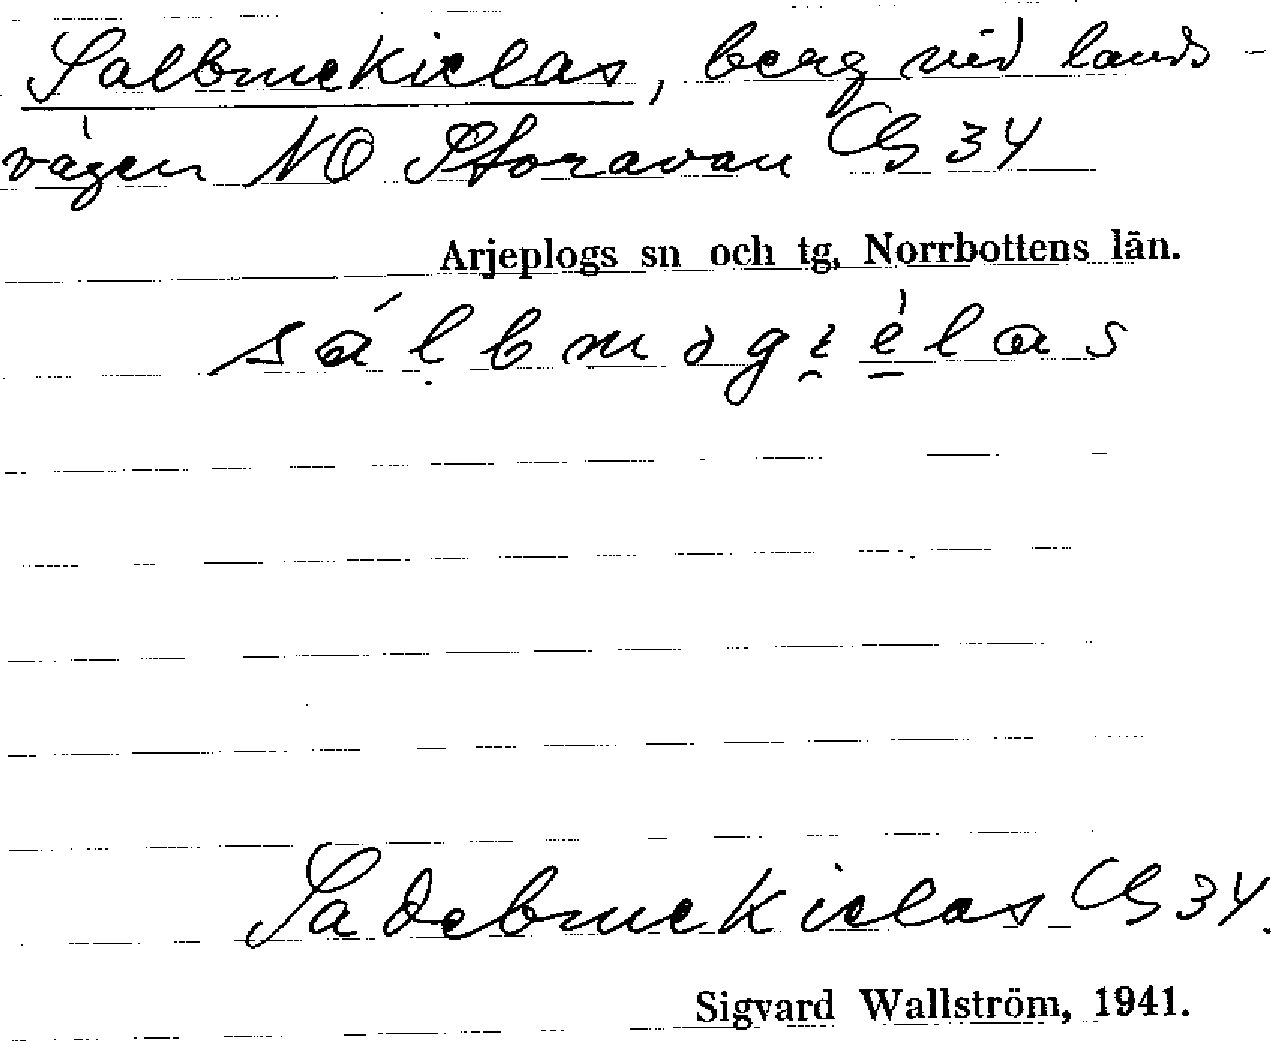 Salbmekielas, berg vid lands-
vägen NO Storavan GS 34
Arjeplogs sn och tg, Norrbottens län.
sálbməgielas
Sadebmekielas GS 34.
Sigvard Wallström, 1941.